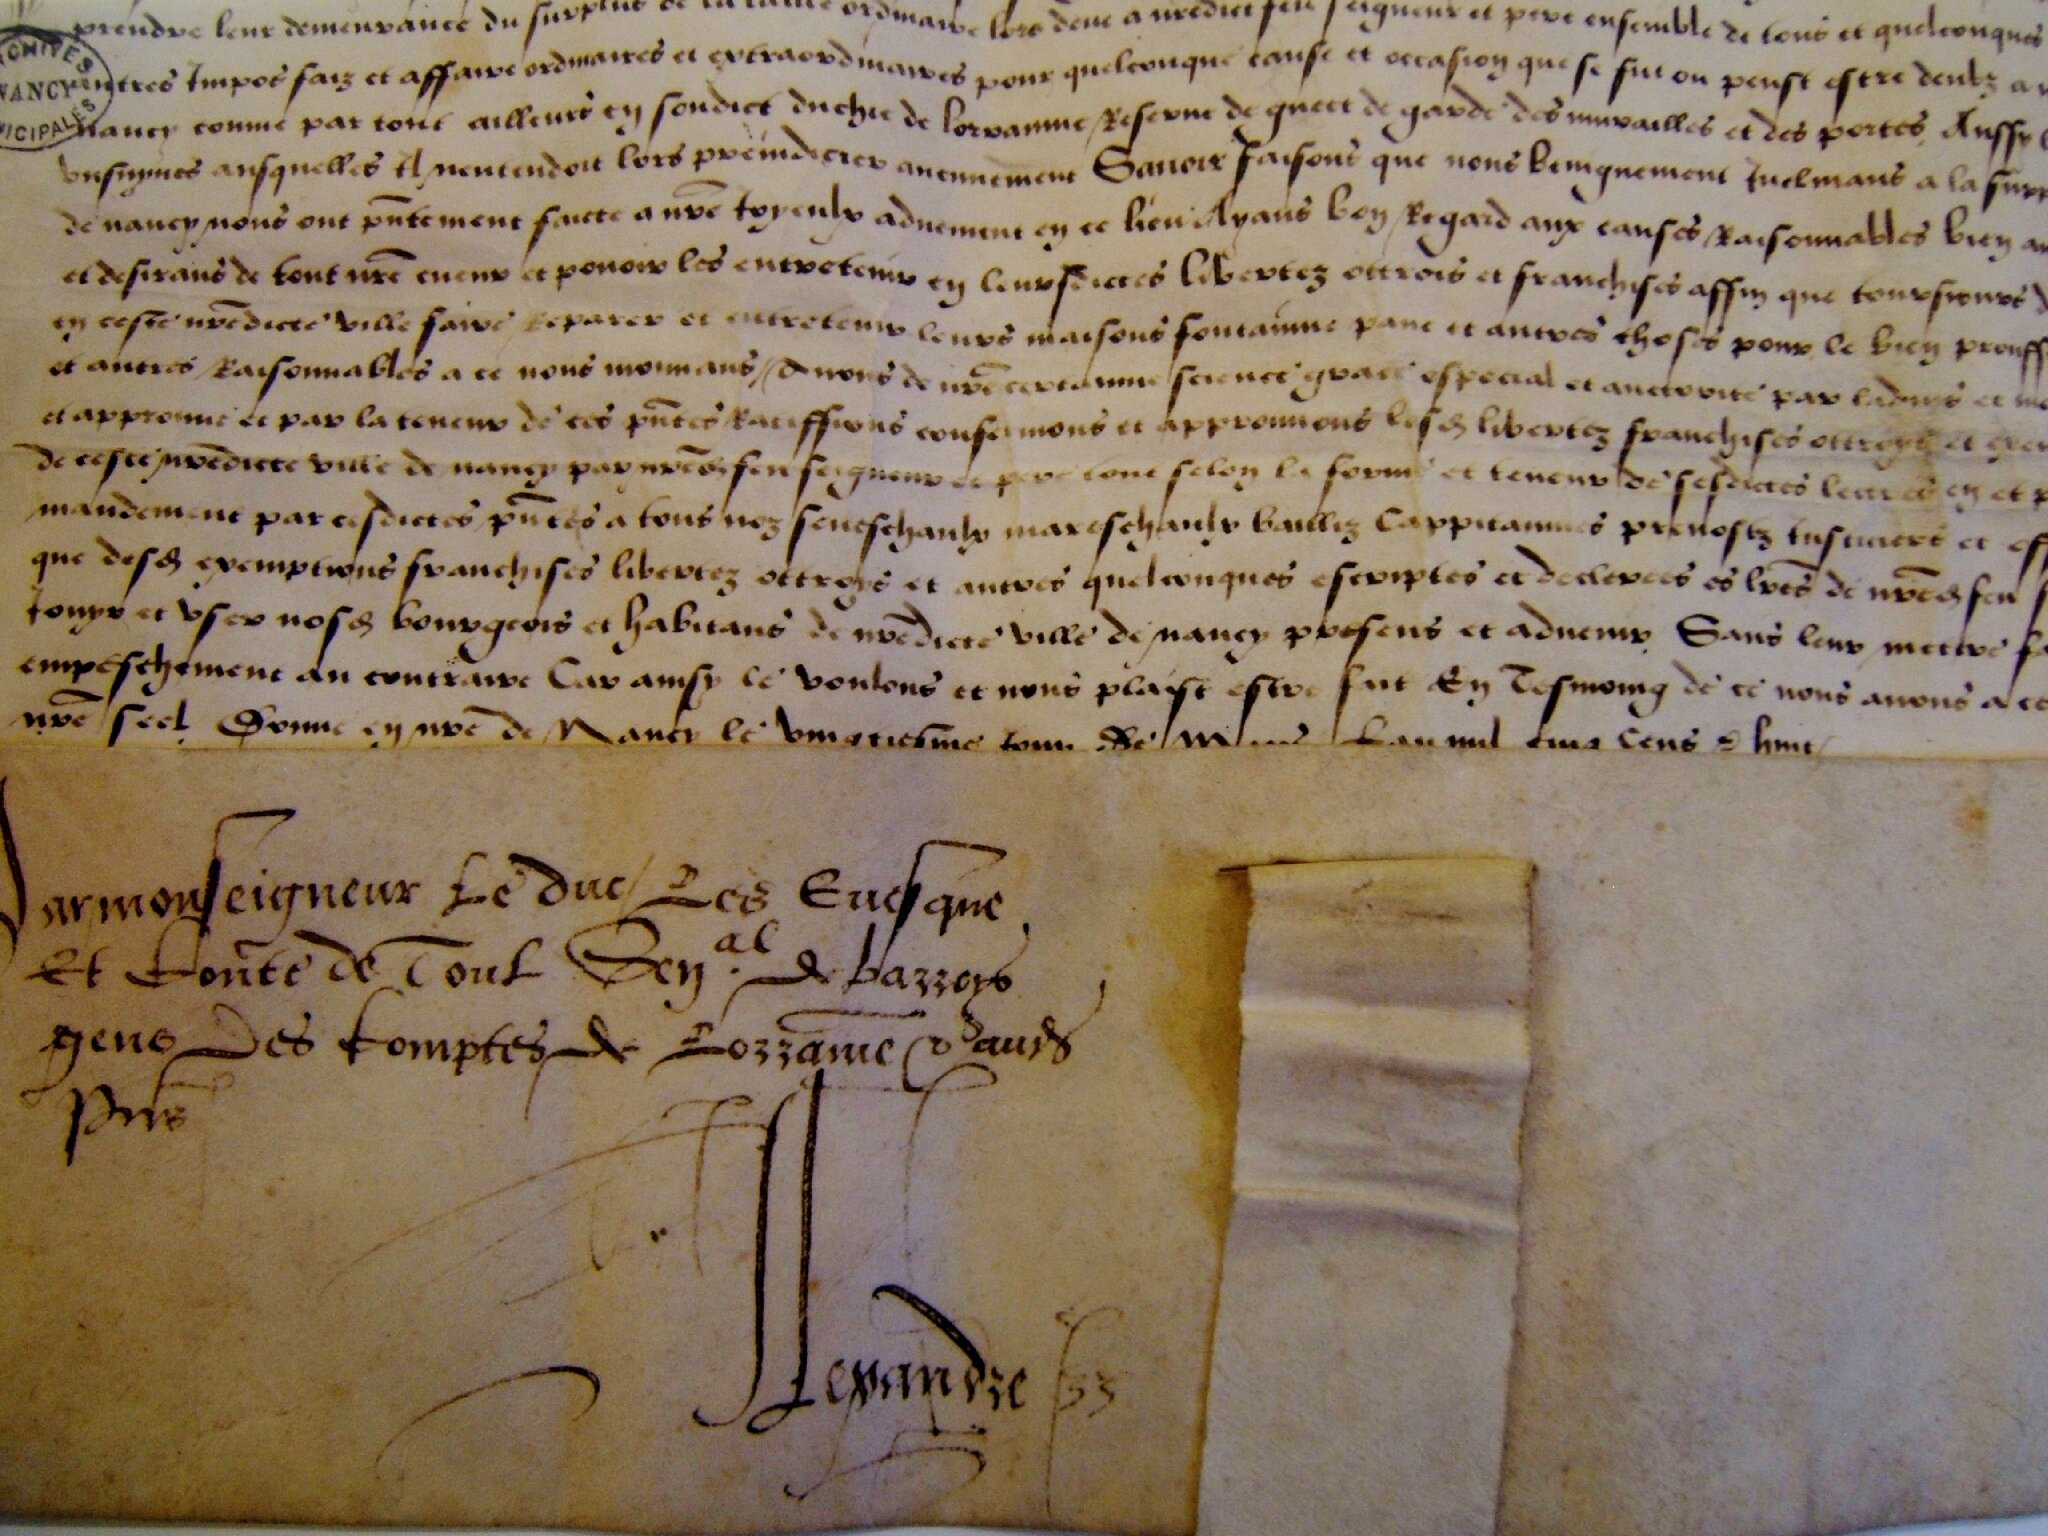 ARCHIVES
NANCY
MUNICIPALES
prendre leur demeurance du surplus de la taille ordinaire lors deue a nredict feu seigneur et pere ensemble de tous et quelconques
autres Impos faiz et affaire ordinaires et extraordinaires pour quelconque cause et occasion que se fut ou peust estre deubz a
nancy comme par tout ailleurs en sondict duchie de lorrainne Reserue de guect de garde des murailles et des portes. Aussy
ausquelles Il nentendoit lors preiudicier aucunement Sauoir faisons que nous benignement Inclinans a la
de nancy nous ont pntement faicte a nre Joyeulx aduement en ce lieu Ayans bon Regard aux causes Raisonnables bien
et desirans de tout nre cueur et pouoir les entretenir en leursdictes libertez ottrois et franchises affin que tousiours
en ceste nredicte ville faire Reparer et entretenir leurs maisons fontainne paue et autres choses pour le bien
et autres Raisonnables a ce nous mouuans Auons de nre certainne science grace especial et auctorite par ladvis et
et approuue et par la teneur de ces pntes Ratiffions confermons et approuuons lesd libertez franchises ottroys et
de ceste nredicte ville de nancy par nred feu seigneur et pere tout selon la forme et teneur de sesdictes lectres en et
mandement par cesdictes pntes a tous noz seneschaulx mareschaulx bailliz Cappitainnes preuostz Justiciers et
que desd exemptions franchises libertez ottroys et autres quelconques escriptes et declerees es lres de nred feu
Jouyr et vser nosd bourgeois et habitans de nredicte ville de nancy presens et aduenir Sans leur mectre
empeschement au contraire Car ainsy le voulons et nous plaist estre fait En Tesmoing de ce nous auons a
nre seel. Donne en nre de Nancy le vingtiesme Jour de Lan mil cinq cens & huit
Par monseigneur Le duc Les Euesque
Et Conte de Toul Señal de barrois
gens Des Comptes de Lorrainne &
Pns
Alexandre